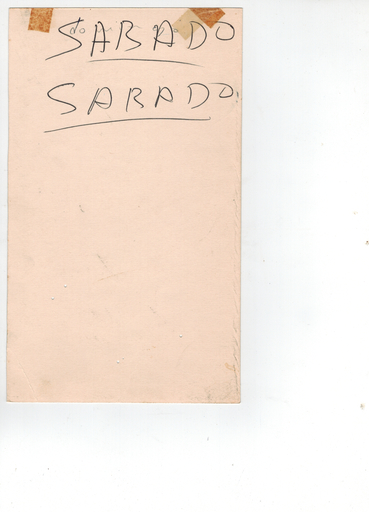 SABADO
SABADO.